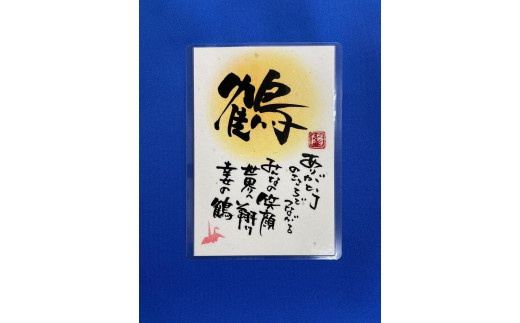 鶴
ありがとう
のこころで
つながる
みんなの笑顔
世界へ翔け
幸せの鶴